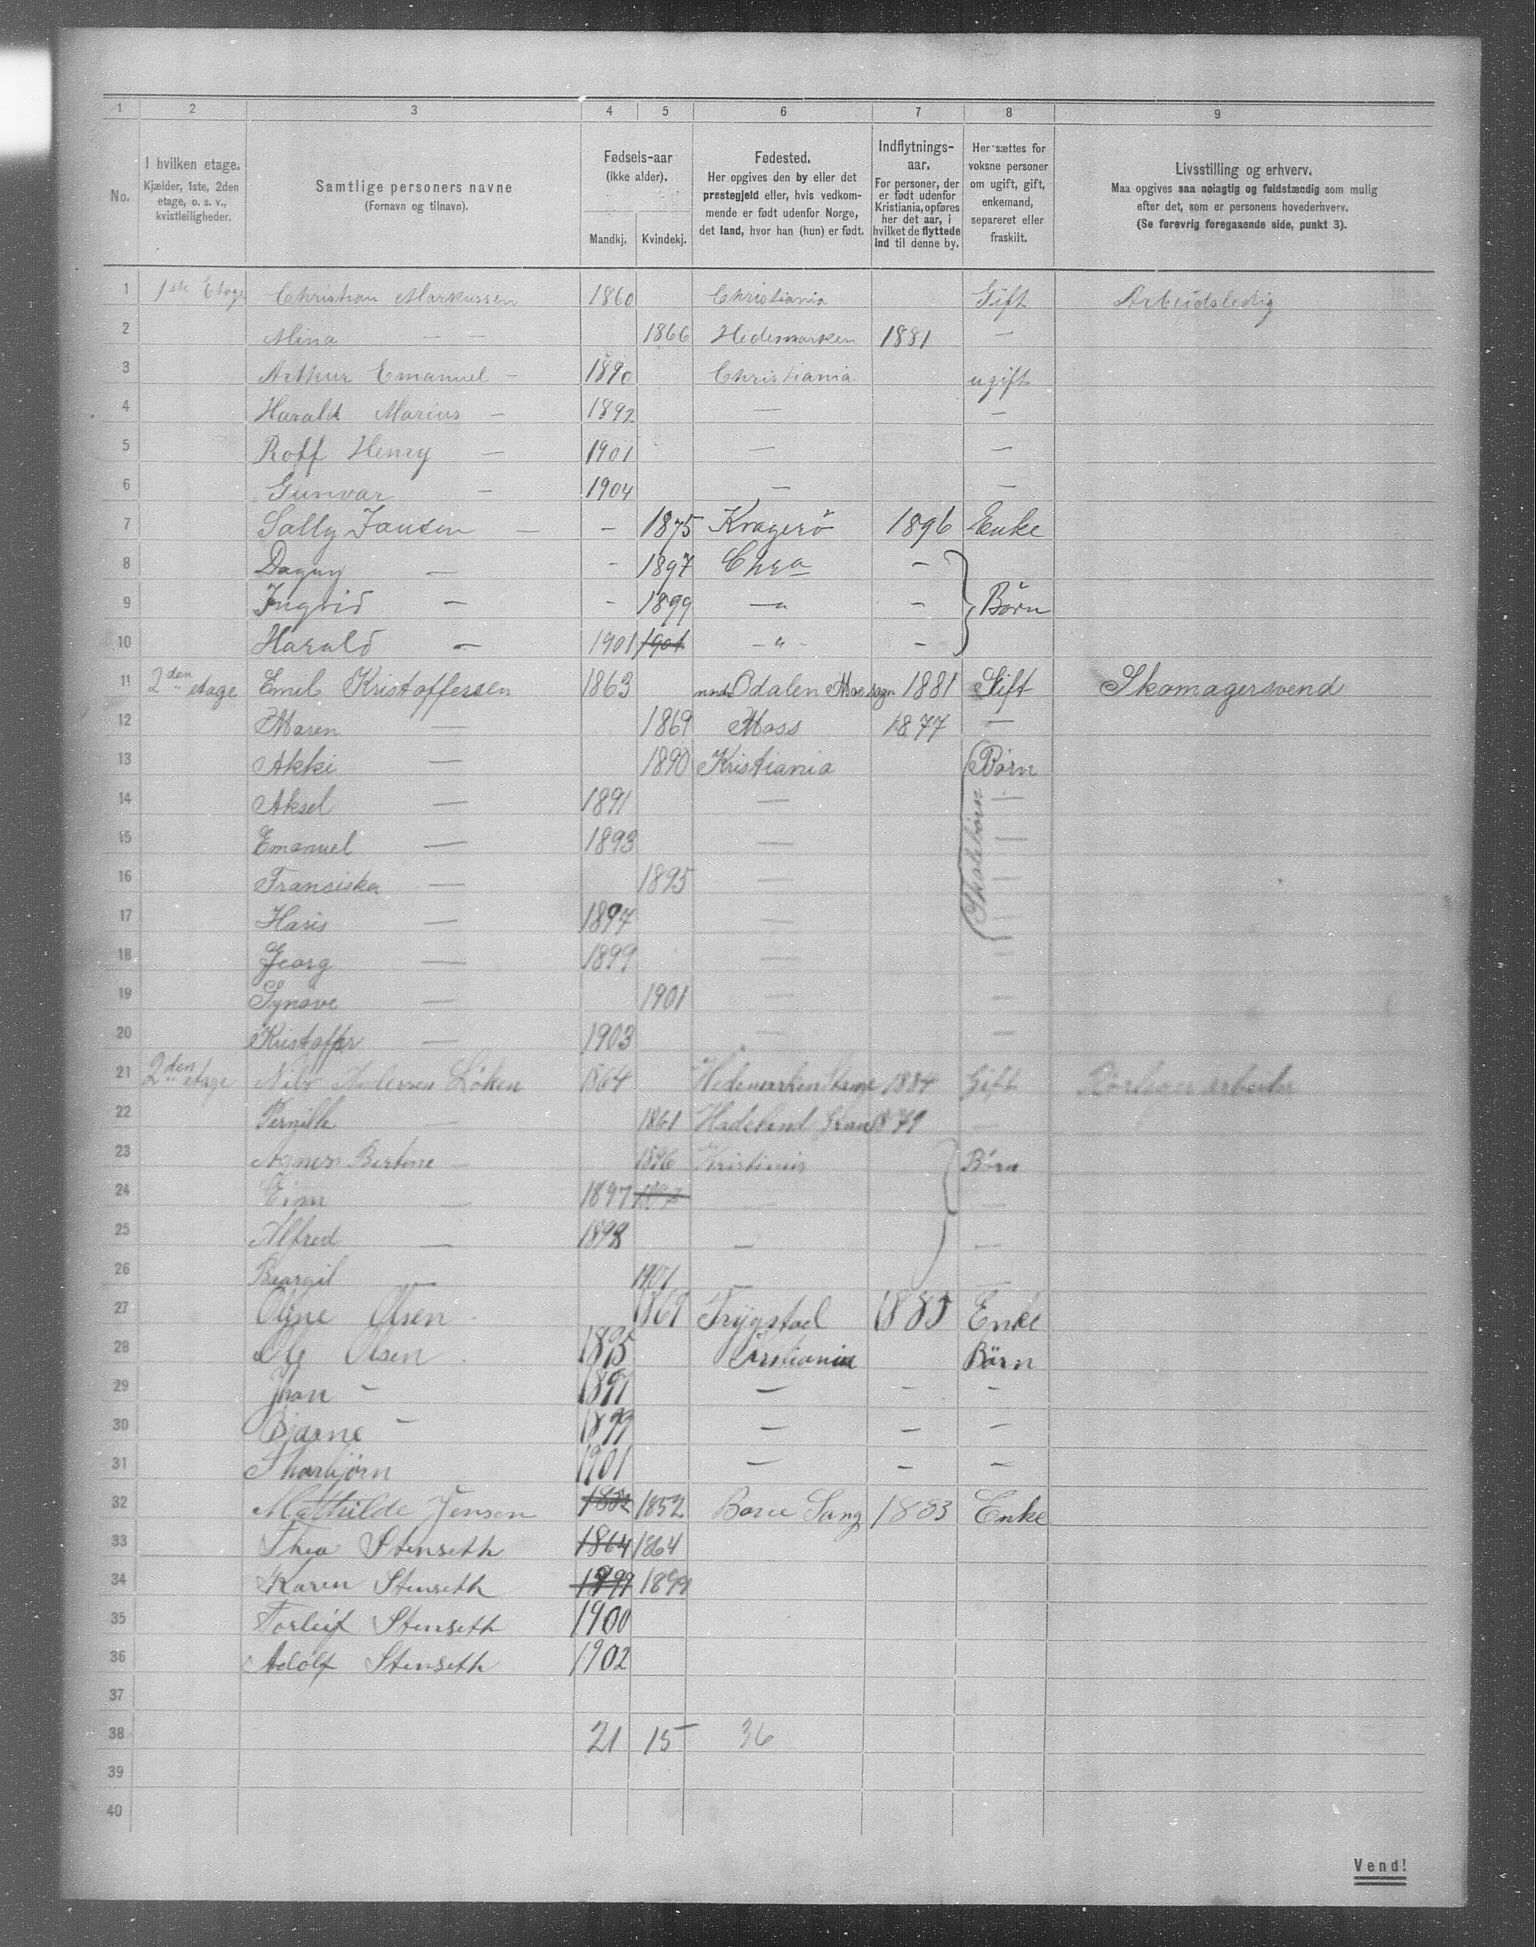 1 2 3 4 5 6 7 8 9
No.
I hvilken etage.
Kjælder, 1ste, 2den
etage, o. s. v.,
kvistleiligheder.
Samtlige personers navne
(Fornavn og tilnavn).
Fødsels-aar
(ikke alder).
Mandkj. Kvindekj.
Fødested.
Her opgives den by eller det
prestegjeld eller, hvis vedkom-
mende er født udenfor Norge,
det land, hvor han (hun) er født.
Indflytnings-
aar.
For personer, der
er født udenfor
Kristiania, opføres
her det aar, i
hvilket de flyttede
ind til denne by.
Her sættes for
voksne personer
om ugift, gift,
enkemand,
separeret eller
fraskilt.
Livsstilling og erhverv.
Maa opgives saa nøiagtig og fuldstændig som mulig
efter det, som er personens hovederhverv.
(Se forøvrig foregaaende side, punkt 3).
1 1ste Etage Christian Markussen 1860 Christiania Gift Arbeidsledig
2 Mina — — 1866 Hedemarken 1881 —
3 Arthur Emanuel — 1890 Christiania ugift
4 Harald Marius — 1892 — —
5 Rolf Henry — 1901 — —
6 Gunvar — 1904 — —
7 Sally Jansen — - 1875 Kragerö 1896 Enke
8 Dagny — - 1897 Chra -
9 Ingrid — - 1899 —"— - Børn
10 Harald — 1901 1901 —"— -
11 2den etage Emil Kristoffessen 1863 nord Odalen Moe sogn 1881 Gift Skomagersvend
12 Maren — 1869 Moss 1877 —
13 Akki — 1890 Kristiania Børn
14 Aksel — 1891 — —
15 Emanuel — 1893 — —
Skolebørn
16 Fransiska — 1895 — —
17 Haris — 1897 — —
18 Georg — 1899 — —
19 Synøve — 1901 — —
20 Kristoffer — 1903 — —
21 2den etage Nils Andersen Löken 1864 Hedemarken 1884 Gift Rørlegger arbeider
22 Pernille — 1861 Hadeland Gran 1879 —
23 Agnes Bertine — 1896 Kristiania Børn
24 Einar — 1897 — —
25 Alfred — 1898 — —
26 — 1901 — —
27 Olsen 1869 Trygstad 1883 Enke
28 Ole Olsen 1895 Cristiania Børn
29 Jhan - 1897 — - -
30 Bjarne - 1899 — - -
31 Thorbjørn 1901 — - -
32 Mathilde Jensen 1852 1852 1883 Enke
33 Thea Stenseth 1864 1864
34 Karen Stenseth 1899 1899
35 Torleif Stenseth 1900
36 Adolf Stenseth 1902
37
38 21 15 36
39
40
Vend!